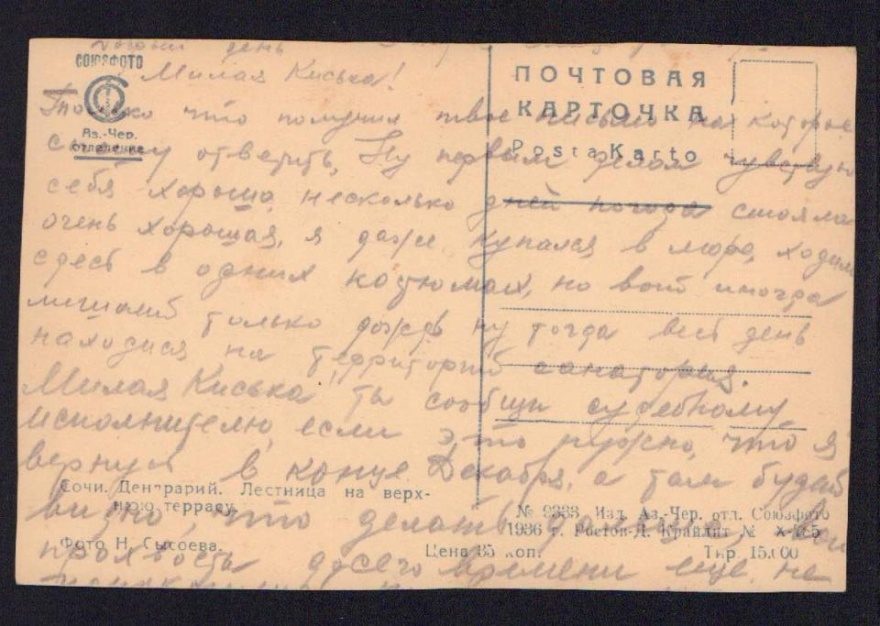 СОЮЗФОТО
Аз.-Чер.
отделение
ПОЧТОВАЯ
КАРТОЧКА
PostaKarto
день
Милая Киська!
Только что получил твое письмо на которое
спешу ответить, Ну первым делом чувствую
себя хорошо, несколько дней погода стояла
очень хорошая, я даже купался в море, ходим
сдесь в одних костюмах, но вот иногда
только дождь ну тогда весь день
находися на территорий санатория.
Милая Киська, ты сообщи судебному
исполнителю, если это нужно, что я
вернусь в конце Декабря, а там будет
видно, что делать дальше
до сего времени еще не
Сочи. Дендрарий. Лестница на верх-
нюю террасу.
Фото Н. Сысоева.
Цена 35 коп.
№ 9388 Изд. Аз.-Чер. отд. Союзфото
1936 г. Ростов-Д. Крайлит №
Тир. 15.000